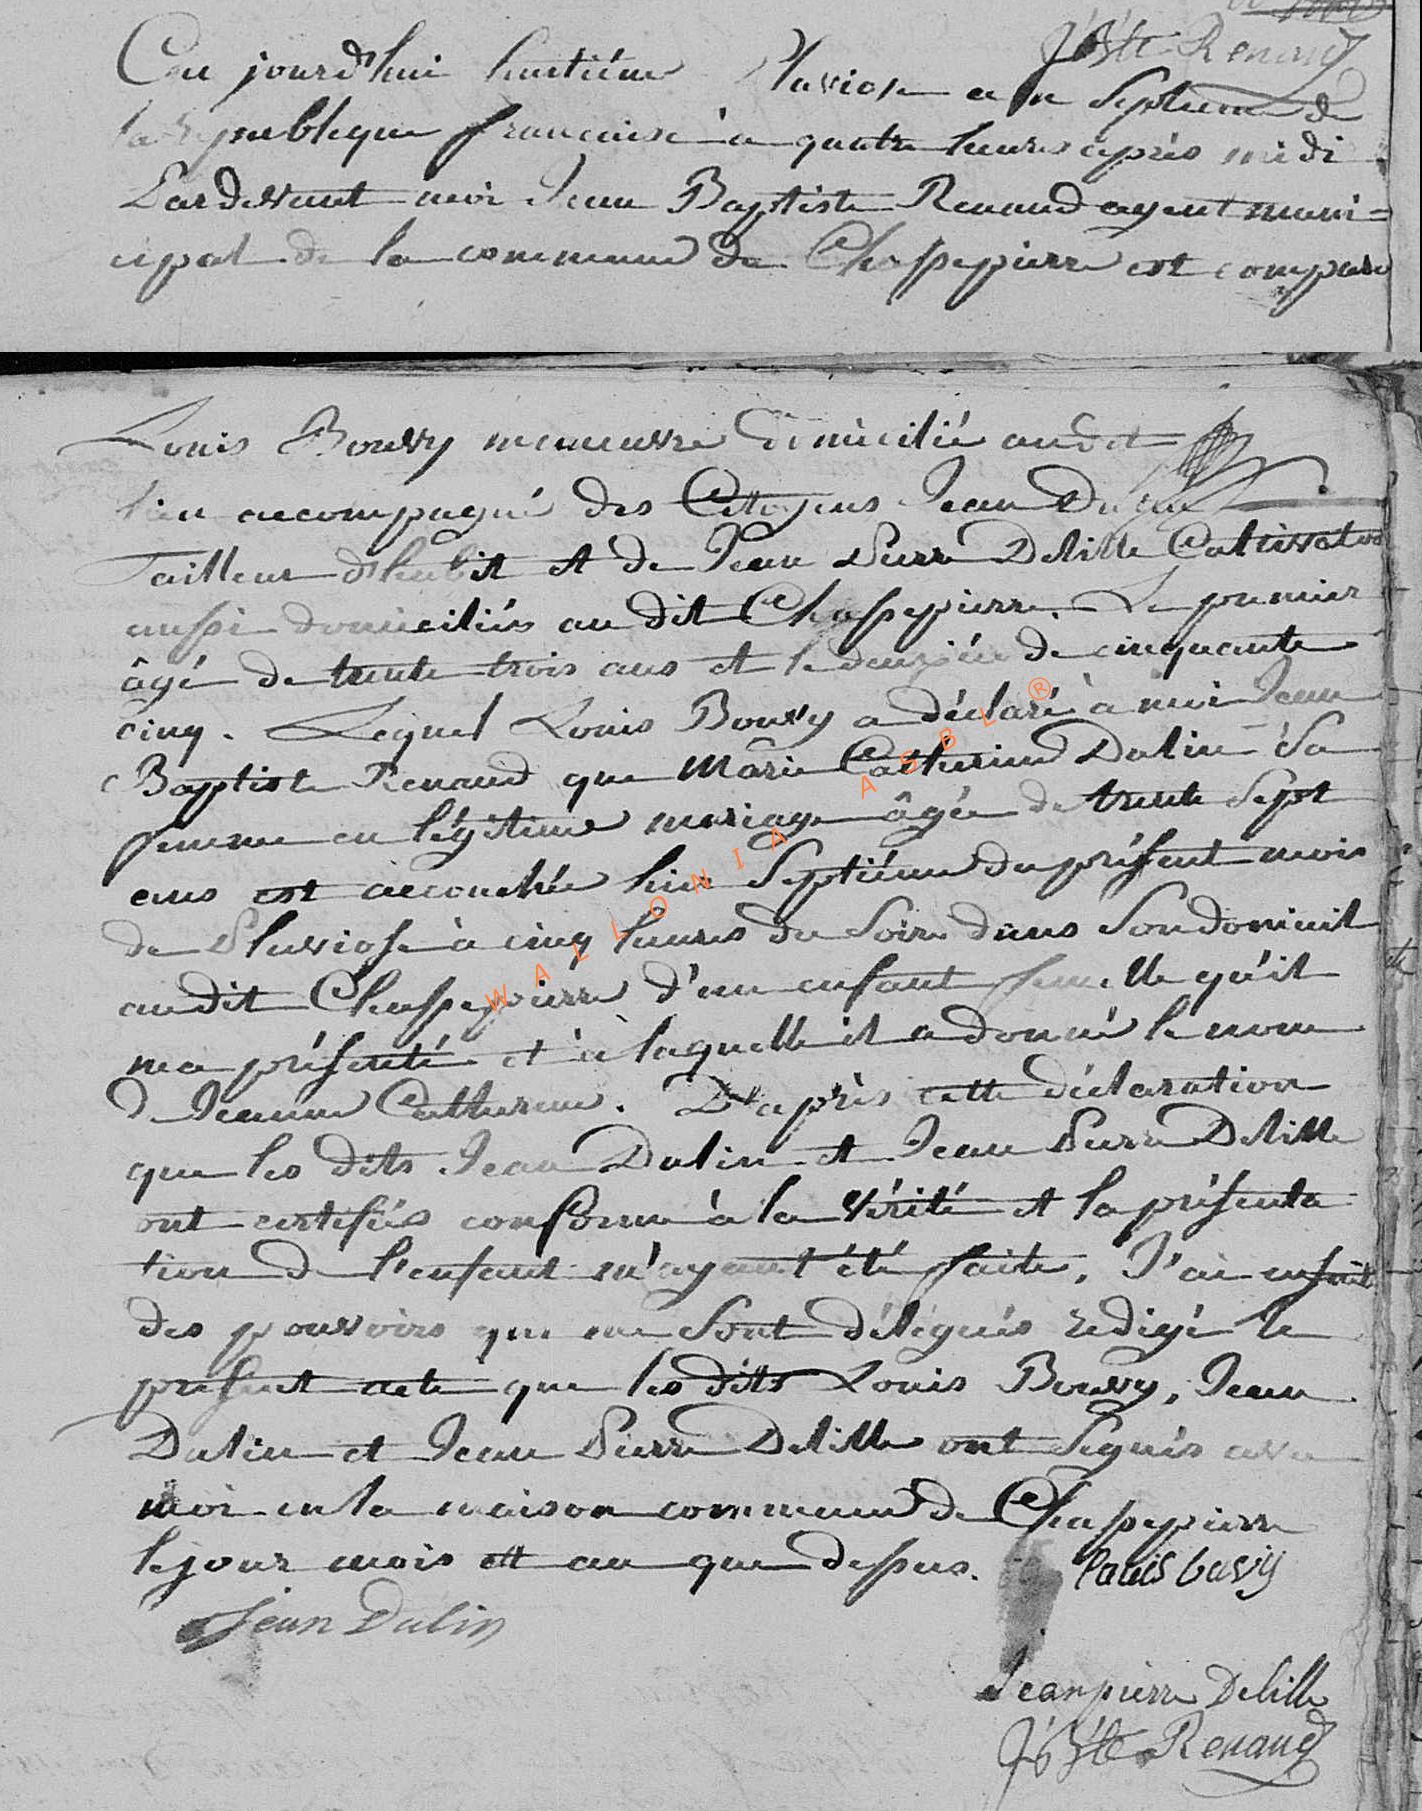 Jn Bte Renaud
Ce jourd'hui huitième Pluviose an Septieme de
la republique francaise à quatre heures après midi.
Pardevant moi Jean Baptiste Renaud agent muni=
cipal de la commune de Chassepierre est comparu
Louis Bouvy manœuvre domicilié audit
lieu accompagné des Citoyens Jean Dulin
Tailleur d'habit et de Jean Pierre Delille Cultivateur
aussi domiciliés au dit Chassepierre. Le premier
âgé de trente trois ans et le deuxième de cinquante
cinq. Lequel Louis Bouvy a déclaré à moi Jean
Baptiste Renaud que Marie Catherine Dulin Sa
femme en légitime mariage âgée de trente Sept
ans est accouchée hier Septiéme du présent mois
de Pluviose à cinq heures du Soir dans Son domicil
audit Chassepierre d'un enfant femelle qu'il
m'a présenté et à laquelle il a donné le nom
de Jeanne Catherine. D'après cette déclaration
que les dits Jean Dulin et Jean Pierre Delille
ont certifiés conforme à la vérité et la présenta
tion de l'enfant m'ayant été faite, J'ai en suit
des pouvoirs qui me Sont délégués rédigé le
présent acte que les dits Louis Bouvy, Jean
Dulin et Jean Pierre Delille ont Signés avec
moi en la maison commune de Chassepierre
le jour mois et an que dessus. Louis buvÿ
Jean Dulin
Jean pierre Delille
Jn Bte Renaud
WALLONIA ASBL ®